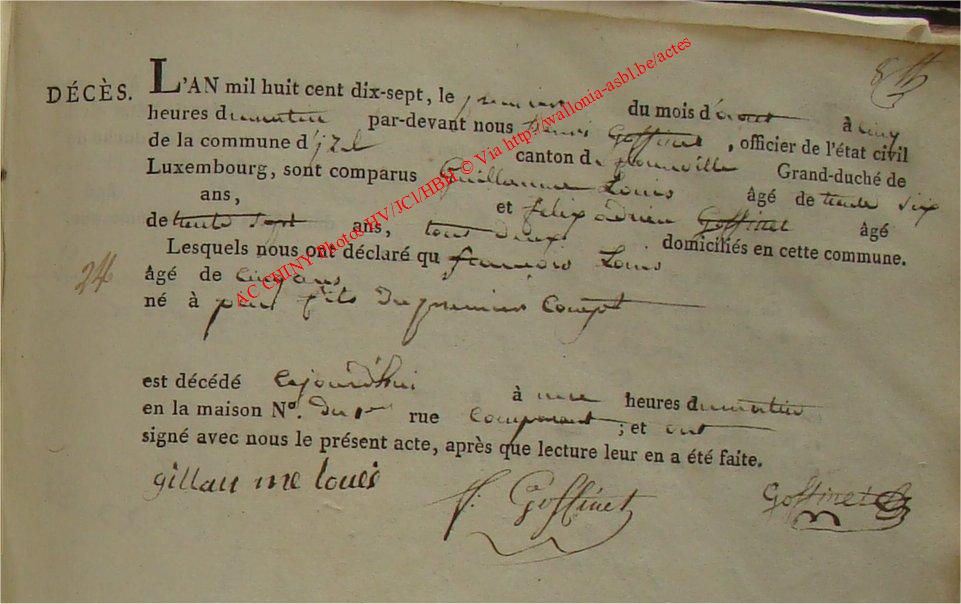 DÉCÈS. L'AN mil huit cent dix-sept, le premier du mois d'aout à cinq
heures du matin par-devant nous henri Goffinet, officier de l'état civil
de la commune d'izel canton de Grand-duché de
Luxembourg, sont comparus Guillaume Louis âgé de trente six
ans, et felix adrien Goffinet âgé
de trente sept ans, tous deux domiciliés en cette commune.
Lesquels nous ont déclaré qu françois Louis
24
âgé de cinq ans
né à pin fils du premier Compt
est décédé cejourd'hui à une heures du matin
en la maison N°. du 1er rue Comparant ; et ont
signé avec nous le présent acte, après que lecture leur en a été faite.
gillau me louis f. Goffinet Goffinet
AC CHINY Photos HV/JCl/HBH © Via http://wallonia-asbl.be/actes